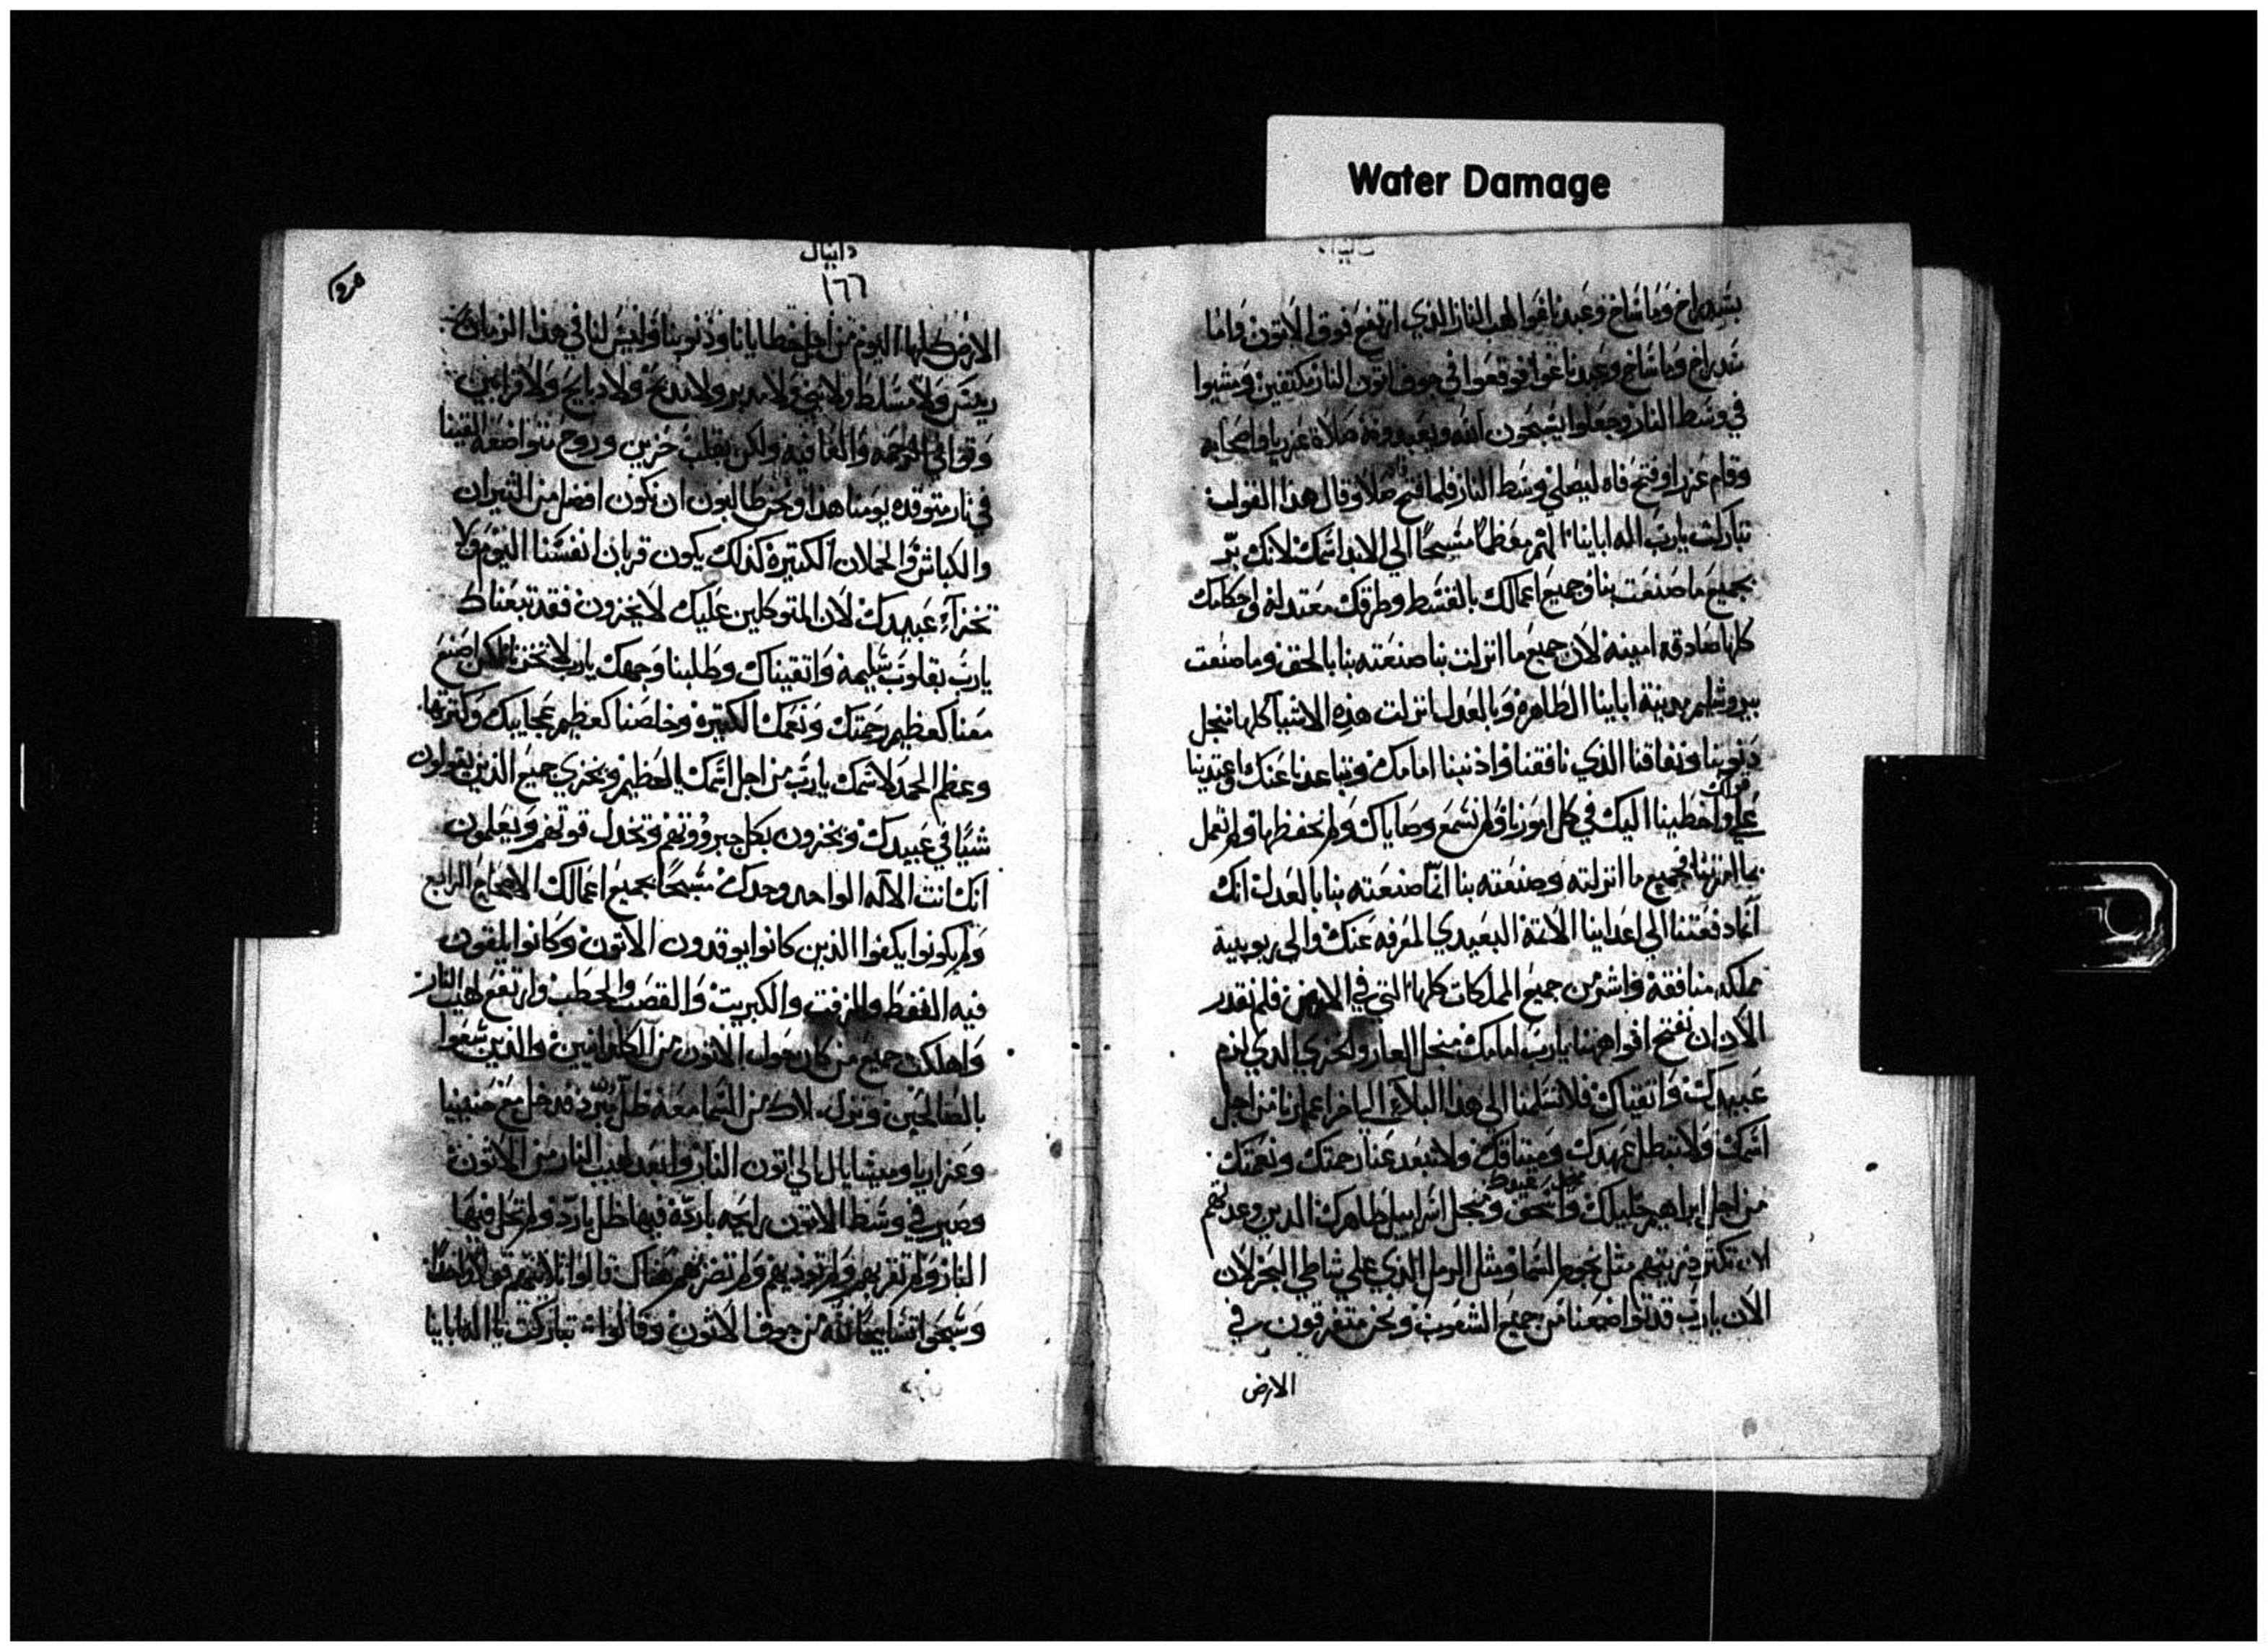 Water Damage
بشدراخ وماشاخ وعبدناغوا لهب النار الذي ارتفع فوق الاتون واما
شدراخ وماشاخ وعبدناغوا فوقعوا في جوف اتون النار مكتفين ومشيوا
في وسط النار وجعلوا يسبحون الله ويعبدونه صلاة عزريا واصحابه
وقام عزرا وفتح فاه ليصلي وسط النار فلما فتح فاه صلا وقال هذا القول
تباركت يارب اله اباينا المعظما مسبحا الي الابد اسمك لانك بر
بجميع ما صنعت بنا وجميع اعمالك بالقسط وطرقك معتدله واحكامك
كلها صادقه امينه لان جميع ما انزلت بنا صنعته بنا بالحق وما صنعت
بيروشليم مدينة اباينا الطاهره وبالعدل انزلت هذه الاشيا كلها منجل
ذنوبنا ونفاقنا الذي نافقنا واذنبنا امامك وتباعدنا عنك واعتدينا
علي قولك واخطينا اليك في كل امورنا ولم نسمع وصاياك ولم نحفظها ولم نعمل
بما امرتنا فجميع ما انزلته وصنعته بنا انما صنعته بنا بالعدل انك
انما دفعتنا الي اعداينا الامة البعيدي المعرفه عنك والي ربوبية
مملكه منافقة واشر من جميع المملكات كلها التي في الارض فلم نقدر
الان ان نفتح افواهنا يارب امامك منجل العار والخزي الذي لزم
عبيدك واتقياك فلا تسلمنا الي هذا البلاء الي اخر اعمارنا من اجل
اسمك ولا تبطل عهدك وميثاقك ولا تبعد عنا رحمتك ونعمتك
من اجل ابراهيم خليلك واسحق عبدك ومنجل اسراييل طاهرك الذين وعدتهم
لان تكثر ذريتهم مثل نجوم السما ومثل الرمل الذي علي شاطي البحر لان
الان يارب قد تواضعنا من جميع الشعوب ونحن متفرقون في
الارض
دانيال
١٦٦
الارض كلها اليوم من اجل خطايانا وذنوبنا وليس لنا في هذا الزمان
ريس ولا مسلط ولا نبي ولا مدبر ولا مذبح ولا دبايح ولا قرابين
ولكن بقلب حزين وروح متواضعه القينا
في نار متوقده يومنا هذا ونحن طالبون ان نكون افضل من الثيران
والكباش والحملان الكثيره كذلك يكون قربان انفسنا اليوم ولا
تخزاء عبيدك لان المتوكلين عليك لا يخزون فقد تبعناك
يارب بقلوب سليمه واتقيناك وطلبنا وجهك يارب لا تخزنا لكن اصنع
معنا كعظيم رحمتك ونعمك الكثيره وخلصنا كعظيم عجايبك وكثرتها
وعظم الحمد لاسمك يارب من اجل اسمك العظيم ويخزي جميع الذين يتولون
شيا في عبيدك ويخزون بكل جبروتهم وتخدل قوتهم ويعلمون
انك انت الاله الواحد وحدك مسبحا بجميع اعمالك الاصحاح الرابع
ولم يكونوا يكفوا الذين كانوا يوقدون الاتون وكانوا يلقون
فيه النفط والزفت والكبريت والقصب والحطب وارتفع لهيب النار
واهلكت جميع من كان حول الاتون من الكلدانيين والذين سعوا
بالصالحين ونزل ملاك من السما معه ظل بارد فدخل مع حننيا
وعزاريا وميشايال الي اتون النار وابعد لهيب النار من الاتون
وصير في وسط الاتون رايحه بارده فيها ظل بارد ولم تحل فيها
النار ولم تقربهم ولم توديهم ولم تضرهم هناك قالوا ثلاثتهم قولا واحدا
وسبحوا تسابيحا لله من جوف الاتون وقالوا تباركت يا اله اباينا